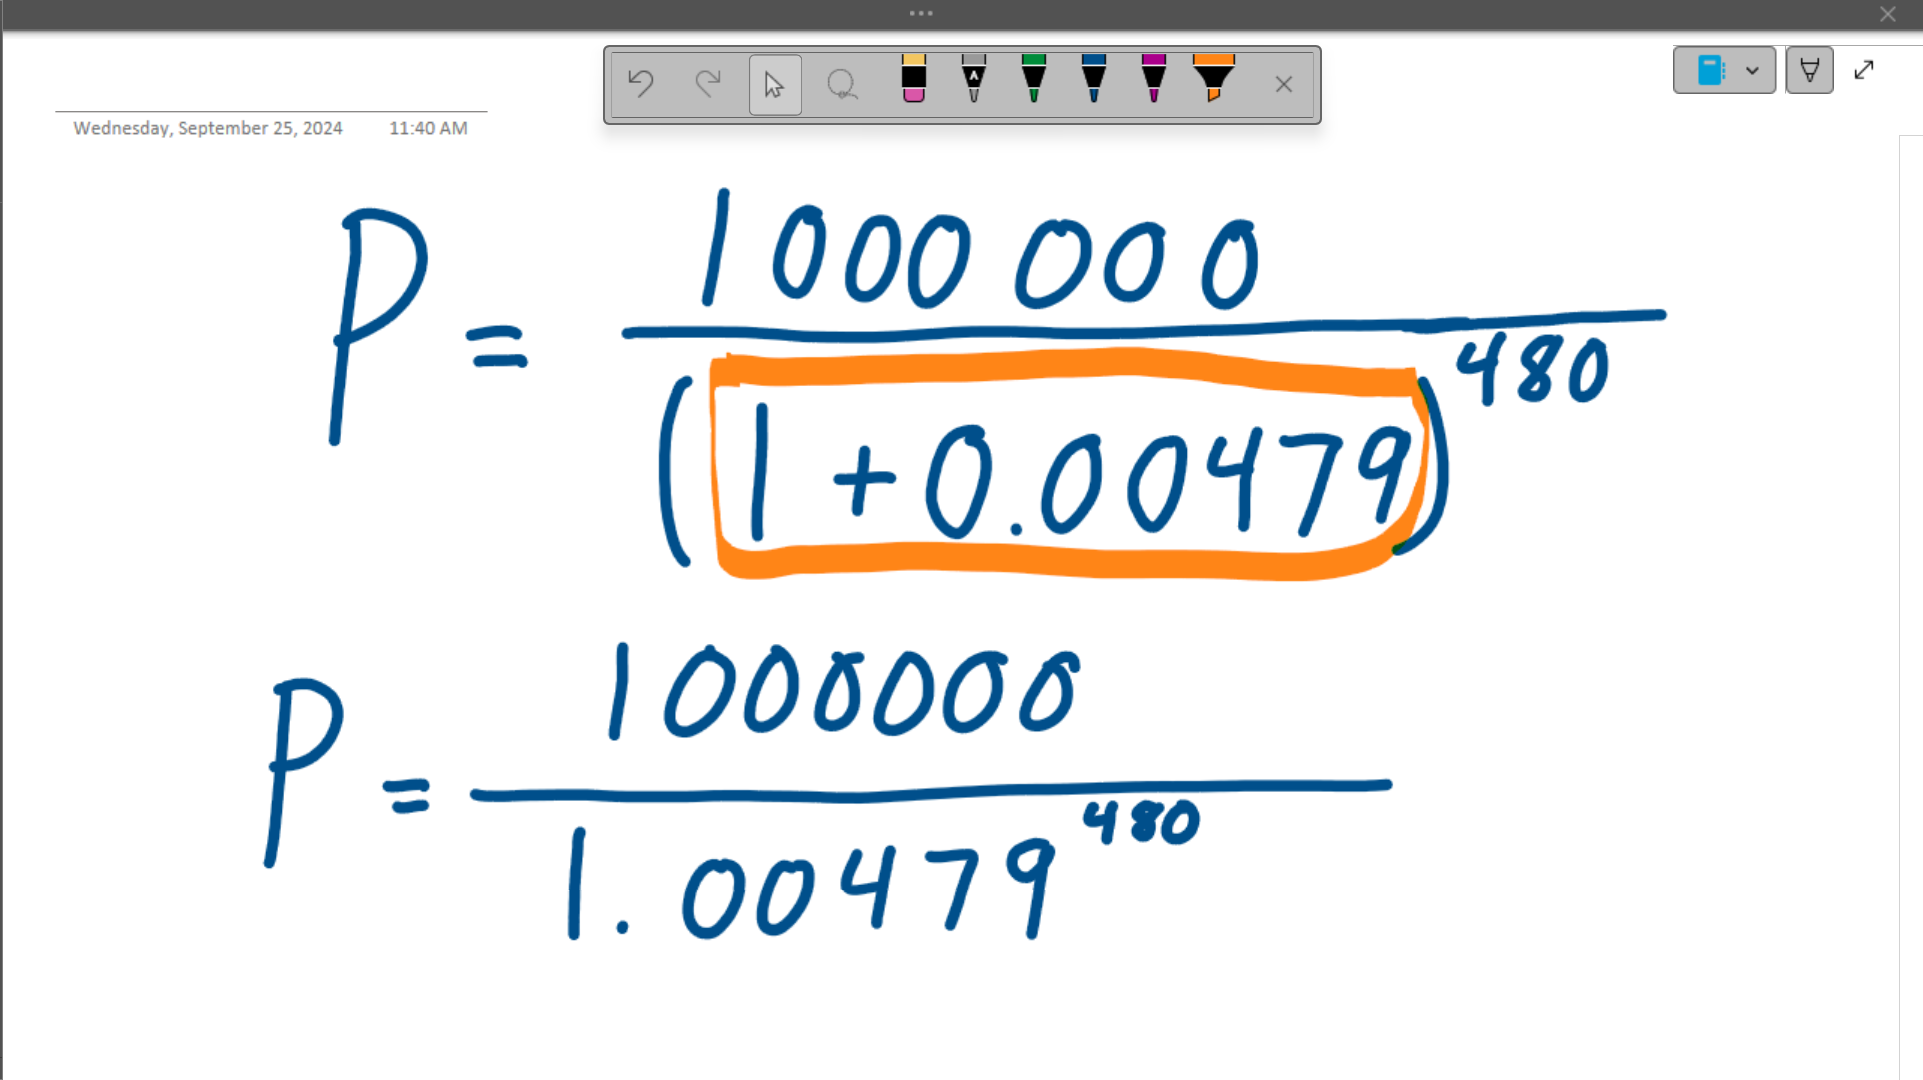 Wednesday, September 25, 2024 11:40 AM
P = 1000 000
(1 + 0.00479)^480
P = 1000000
1.00479^480